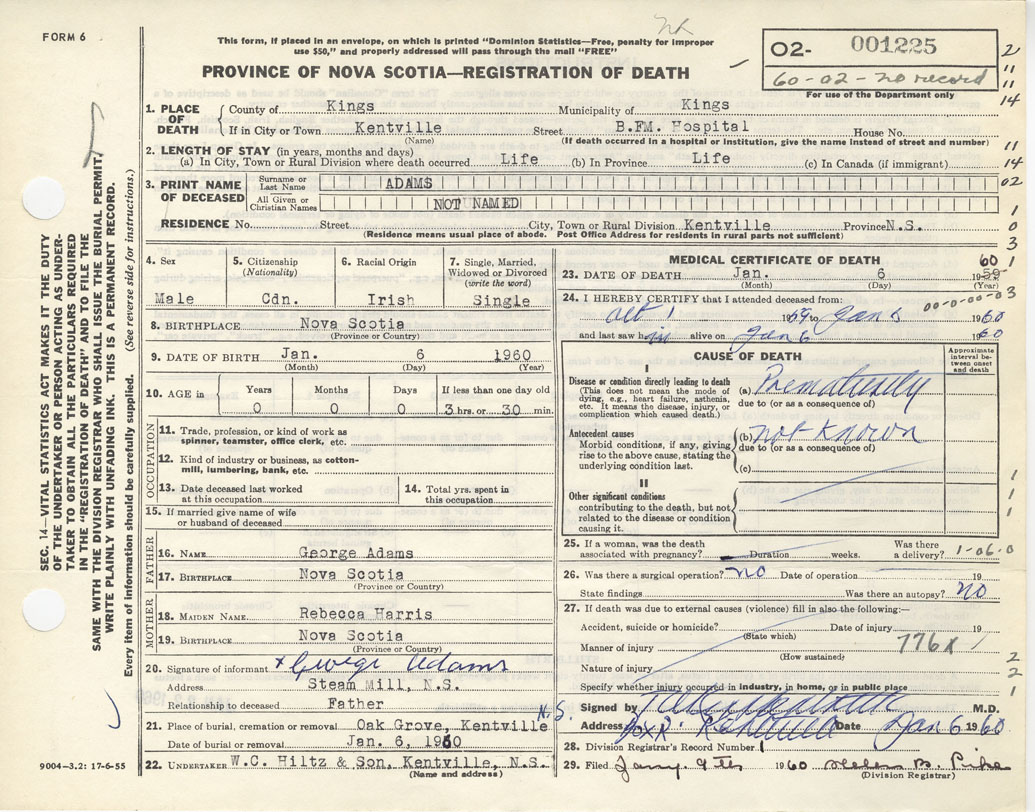 FORM 6
This form, if placed in an envelope, on which is printed "Dominion Statistics—Free, penalty for improper
use $50," and properly addressed will pass through the mail "FREE"
PROVINCE OF NOVA SCOTIA—REGISTRATION OF DEATH
02- 001225
60-02-no record
For use of the Department only
1. PLACE OF DEATH
County of Kings Municipality of Kings
If in City or Town Kentville Street B.FM. Hospital House No.
(Name) (If death occurred in a hospital or institution, give the name instead of street and number)
2. LENGTH OF STAY (in years, months and days)
(a) In City, Town or Rural Division where death occurred Life (b) In Province Life (c) In Canada (if immigrant)
3. PRINT NAME OF DECEASED
Surname or Last Name ADAMS
All Given or Christian Names NOT NAMED
RESIDENCE No. Street City, Town or Rural Division Kentville Province N.S.
(Residence means usual place of abode. Post Office Address for residents in rural parts not sufficient)
4. Sex
Male
5. Citizenship (Nationality)
Cdn.
6. Racial Origin
Irish
7. Single, Married, Widowed or Divorced (write the word)
Single
8. BIRTHPLACE Nova Scotia
(Province or Country)
9. DATE OF BIRTH Jan. 6 1960
(Month) (Day) (Year)
10. AGE in
Years Months Days If less than one day old
0 0 0 3 hrs. or 30 min.
OCCUPATION
11. Trade, profession, or kind of work as
spinner, teamster, office clerk, etc.
12. Kind of industry or business, as cotton-
mill, lumbering, bank, etc.
13. Date deceased last worked
at this occupation
14. Total yrs. spent in
this occupation
15. If married give name of wife
or husband of deceased
FATHER
16. NAME George Adams
17. BIRTHPLACE Nova Scotia
(Province or Country)
MOTHER
18. MAIDEN NAME Rebecca Harris
19. BIRTHPLACE Nova Scotia
(Province or Country)
20. Signature of informant x George Adams
Address Steam Mill, N.S.
Relationship to deceased Father
21. Place of burial, cremation or removal Oak Grove, Kentville N.S.
Date of burial or removal Jan. 6, 1960
22. UNDERTAKER W.C. Hiltz & Son, Kentville, N.S.
(Name and address)
MEDICAL CERTIFICATE OF DEATH
23. DATE OF DEATH Jan. 6 1959 60
(Month) (Day) (Year)
24. I HEREBY CERTIFY that I attended deceased from:
Oct 1 1959 to Jan 6 1960
00-0-00-03
and last saw him alive on Jan 6 1960
CAUSE OF DEATH
Approximate interval between onset and death
I
Disease or condition directly leading to death
(This does not mean the mode of
dying, e.g., heart failure, asthenia,
etc. It means the disease, injury, or
complication which caused death.)
(a) Prematurity
due to (or as a consequence of)
Antecedent causes
Morbid conditions, if any, giving
rise to the above cause, stating the
underlying condition last.
(b) not known
due to (or as a consequence of)
(c)
II
Other significant conditions
contributing to the death, but not
related to the disease or condition
causing it.
25. If a woman, was the death
associated with pregnancy? Duration weeks. Was there a delivery? 1-06-0
26. Was there a surgical operation? no Date of operation 19
State findings Was there an autopsy? no
27. If death was due to external causes (violence) fill in also the following:—
Accident, suicide or homicide? Date of injury 19
(State which)
Manner of injury 776X
(How sustained)
Nature of injury
Specify whether injury occurred in industry, in home, or in public place
Signed by M.D.
Address Box R. Kentville Date Jan 6 1960
28. Division Registrar's Record Number 1
29. Filed Jany. 9th 1960 Helen B. Pike
(Division Registrar)
SEC. 14—VITAL STATISTICS ACT MAKES IT THE DUTY
OF THE UNDERTAKER OR PERSON ACTING AS UNDER-
TAKER TO OBTAIN ALL THE PARTICULARS REQUIRED
IN THE "REGISTRATION OF DEATH" AND TO FILE THE
SAME WITH THE DIVISION REGISTRAR WHO SHALL ISSUE THE BURIAL PERMIT.
WRITE PLAINLY WITH UNFADING INK. THIS IS A PERMANENT RECORD.
Every item of information should be carefully supplied. (See reverse side for instructions.)
9004-3.2: 17-6-55
2
11
11
14
11
14
02
1
0
3
1
1
1
1
2
2
1